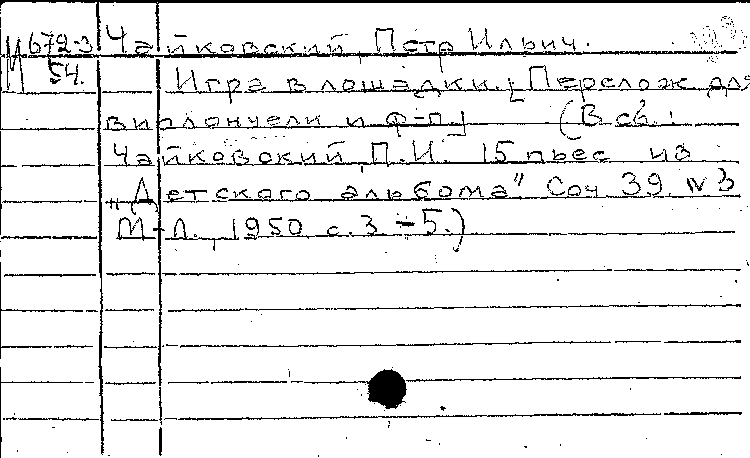 М 672-3 Чайковский, Петр Ильич.
54. Игра в лошадки. [Перелож для
виолончели и ф-п.] (В сб.:
Чайковский, П.И. 15 пьес из
"Детского альбома" Соч 39. N 3
М-Л., 1950 с. 3-5.)